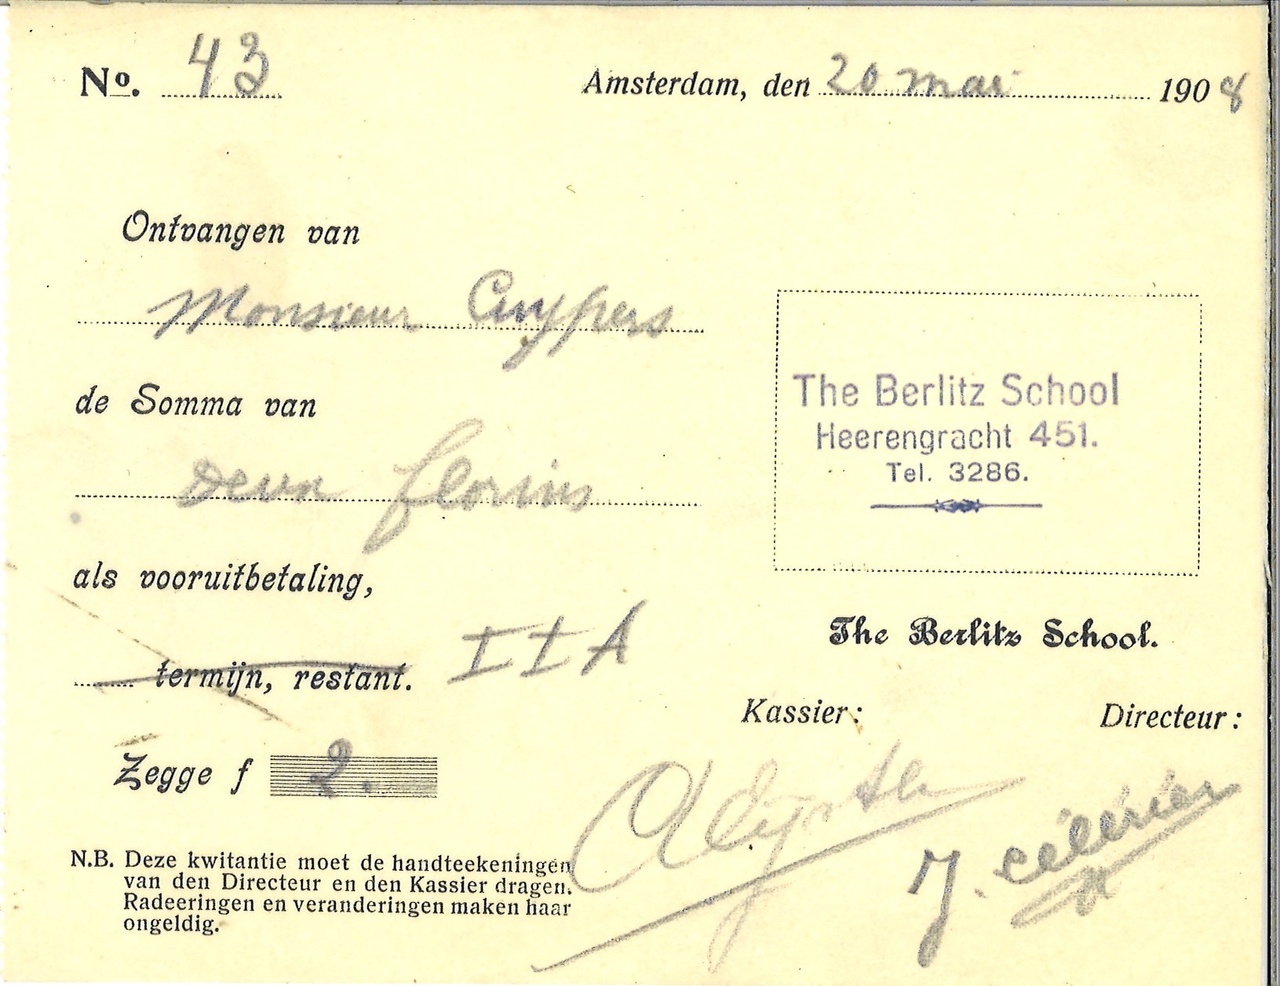 No. 43
Amsterdam, den 20 mai 1908
Ontvangen van
Monsieur Cuypers
de Somma van
Deux florins
als vooruitbetaling,
termijn, restant. IIA
Zegge f 2.
The Berlitz School
Heerengracht 451.
Tel. 3286.
The Berlitz School.
Kassier: Directeur:
J. Célérier
N.B. Deze kwitantie moet de handteekeningen
van den Directeur en den Kassier dragen.
Radeeringen en veranderingen maken haar
ongeldig.